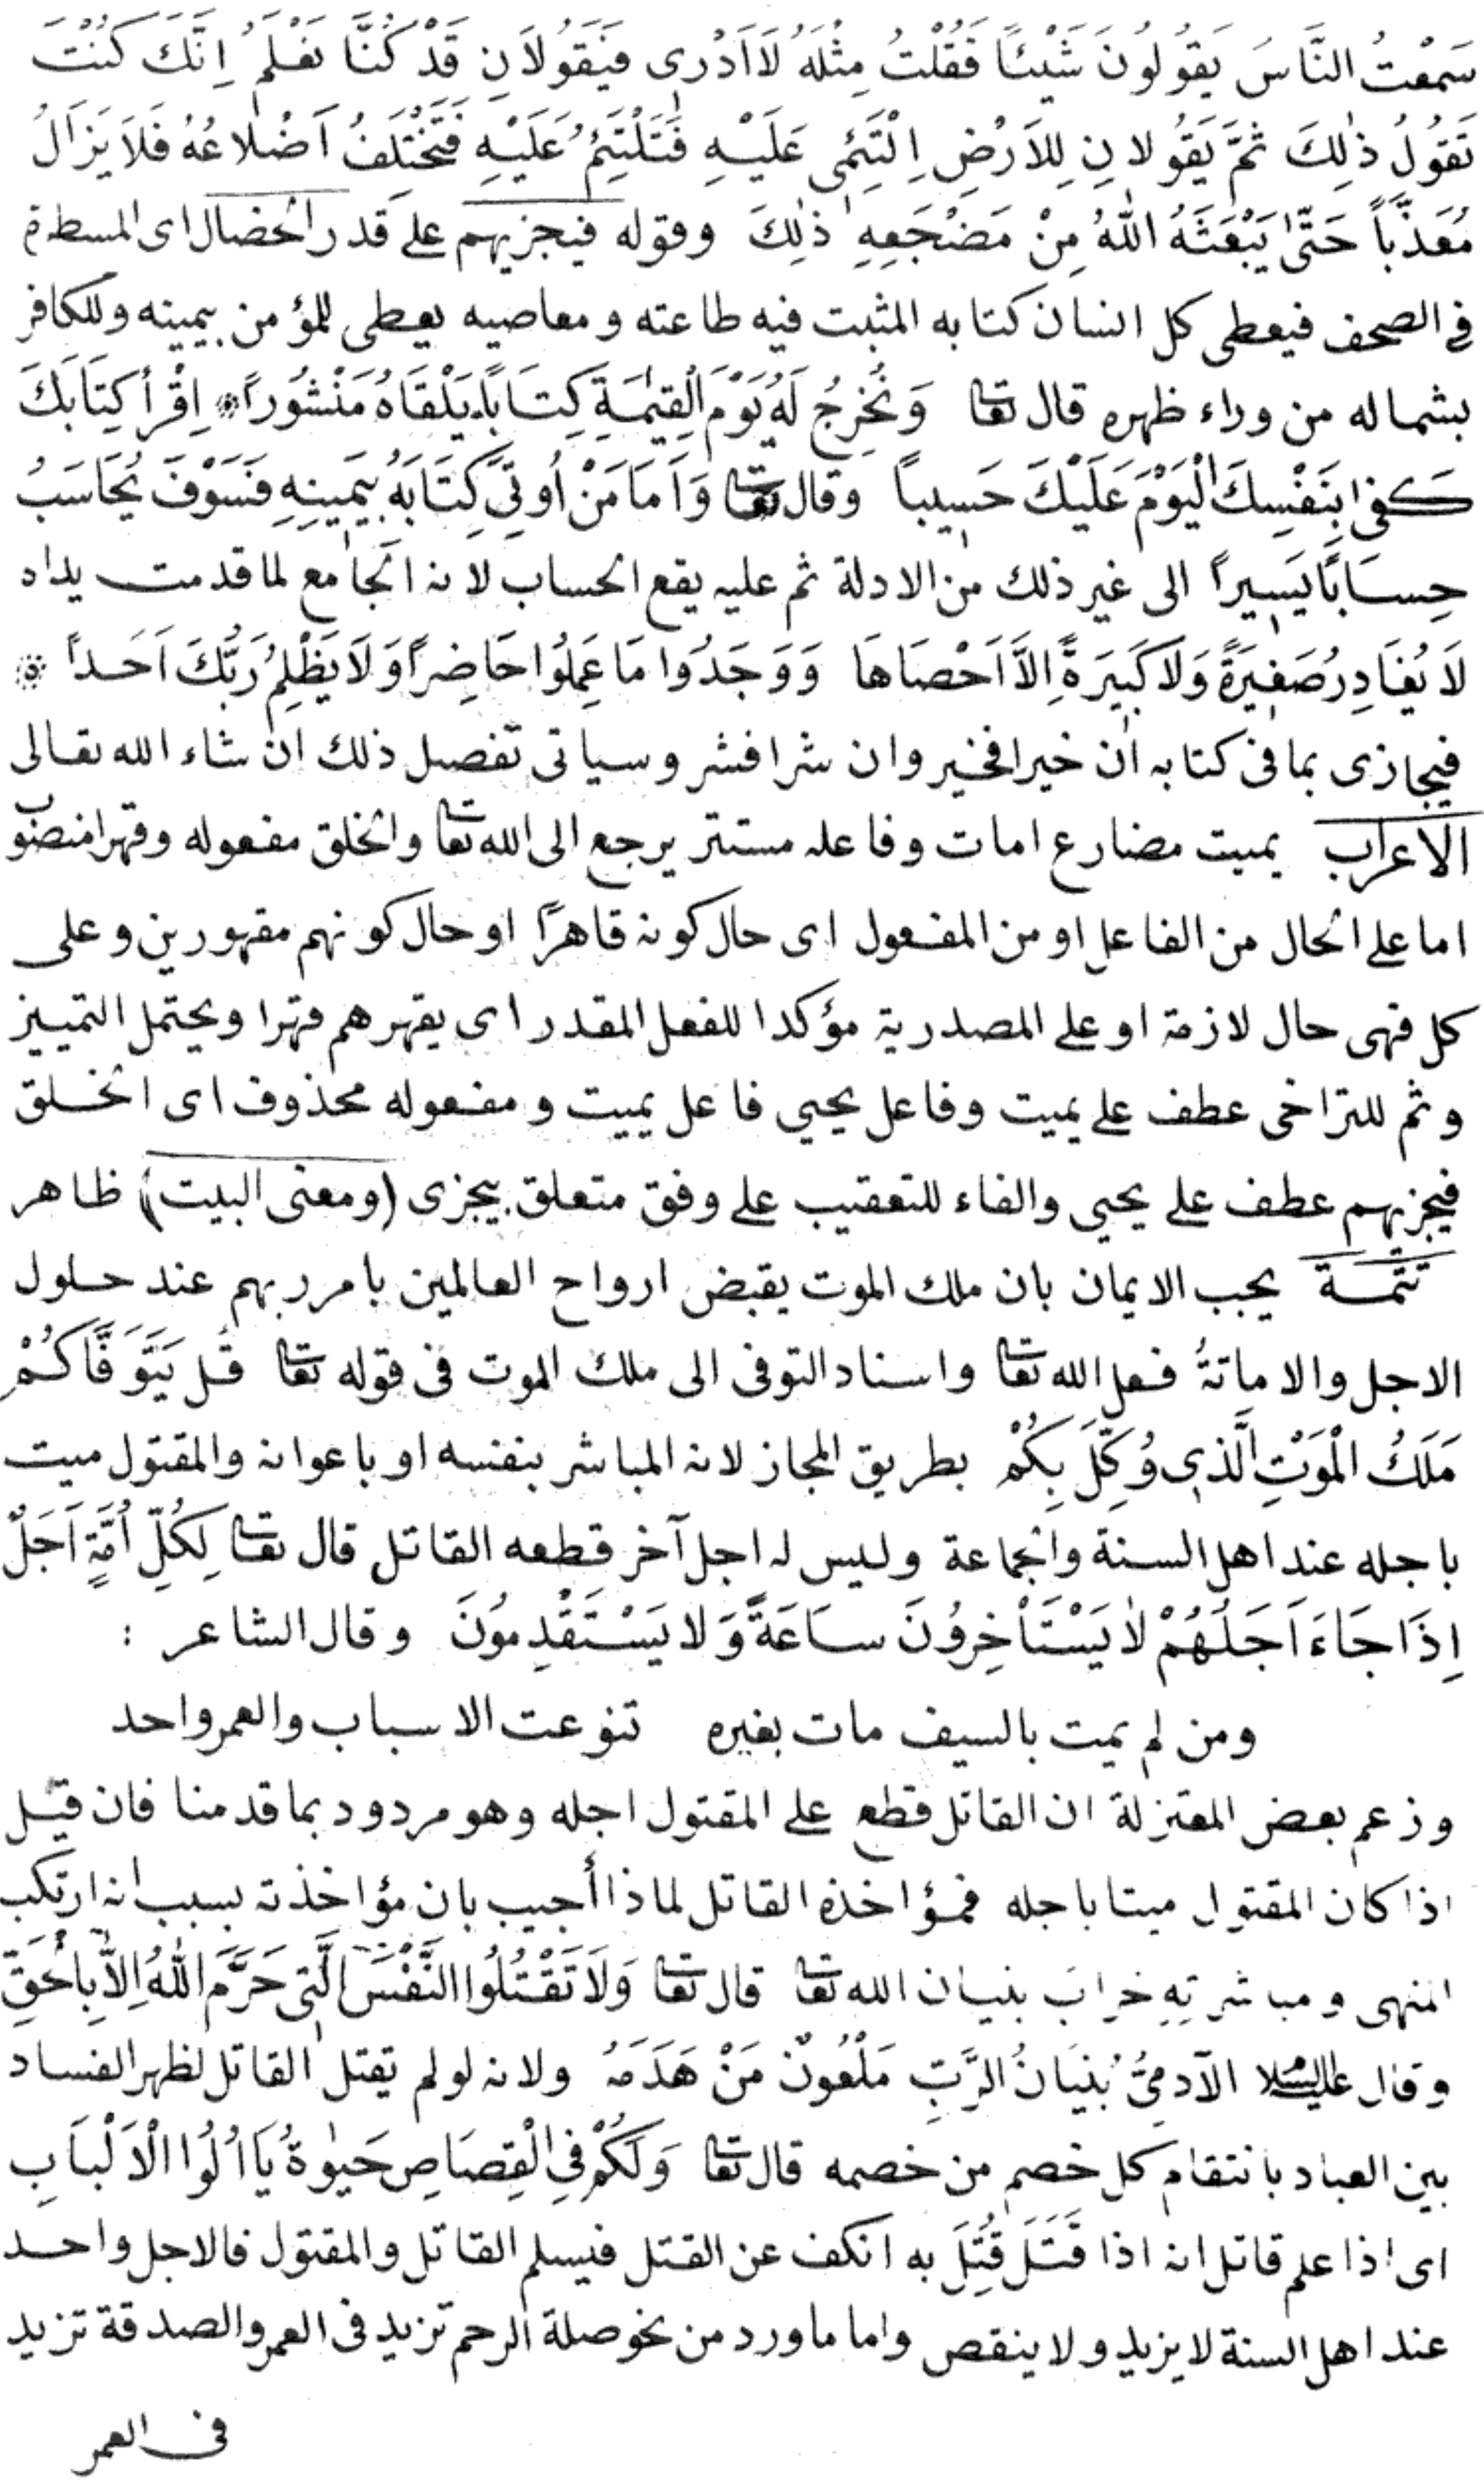 سَمِعْتُ النَّاسَ يَقُولُونَ شَيْئًا فَقُلْتُ مِثْلَهُ لَا اَدْرِي فَيَقُولَانِ قَدْ كُنَّا نَعْلَمُ اِنَّكَ كُنْتَ
تَقُولُ ذٰلِكَ ثُمَّ يَقُولَانِ لِلْاَرْضِ اِلْتَئِمِي عَلَيْهِ فَتَلْتَئِمُ عَلَيْهِ فَتَخْتَلِفُ اَضْلَاعُهُ فَلَا يَزَالُ
مُعَذَّبًا حَتّٰى يَبْعَثَهُ اللّٰهُ مِنْ مَضْجَعِهِ ذٰلِكَ وقوله فيجزيهم على قدر الخصال اى المسطرة
فى الصحف فيعطى كل انسان كتابه المثبت فيه طاعته ومعاصيه يعطى للمؤمن بيمينه وللكافر
بشماله من وراء ظهره قال تعا وَنُخْرِجُ لَهُ يَوْمَ الْقِيٰمَةِ كِتَابًا يَلْقَاهُ مَنْشُورًا * اِقْرَأْ كِتَابَكَ
كَفٰى بِنَفْسِكَ الْيَوْمَ عَلَيْكَ حَسِيبًا وقال تعا وَاَمَا مَنْ اُوتِيَ كِتَابَهُ بِيَمِينِهِ فَسَوْفَ يُحَاسَبُ
حِسَابًا يَسِيرًا الى غير ذلك من الادلة ثم عليه يقع الحساب لانه الجامع لما قدمت يداه
لَا يُغَادِرُ صَغِيرَةً وَلَا كَبِيرَةً اِلَّا اَحْصَاهَا وَوَجَدُوا مَا عَمِلُوا حَاضِرًا وَلَا يَظْلِمُ رَبُّكَ اَحَدًا *
فيجازى بما فى كتابه ان خيرا فخير وان شرا فشر وسياتى تفصل ذلك ان شاء الله تعالى
الاعراب يميت مضارع امات وفاعله مستتر يرجع الى الله تعا والخلق مفعوله وقهرا منصوب
اما على الحال من الفاعل او من المفعول اى حال كونه قاهرًا او حال كونهم مقهورين وعلى
كل فهى حال لازمة او على المصدرية مؤكدا للفعل المقدر اى يقهرهم قهرا ويحتمل التمييز
وثم للتراخى عطف على يميت وفاعل يحيى فاعل يميت ومفعوله محذوف اى الخلق
فيجزيهم عطف على يحيى والفاء للتعقيب على وفق متعلق بيجزى (ومعنى البيت) ظاهر
تتمة يجب الايمان بان ملك الموت يقبض ارواح العالمين بامر ربهم عند حلول
الاجل والاماتةُ فعل الله تعا واسناد التوفى الى ملك الموت فى قوله تعا قُلْ يَتَوَفَّاكُمْ
مَلَكُ الْمَوْتِ الَّذِي وُكِّلَ بِكُمْ بطريق المجاز لانه المباشر بنفسه او باعوانه والمقتول ميت
باجله عند اهل السنة والجماعة وليس له اجل آخر قطعه القاتل قال تعا لِكُلِّ اُمَّةٍ اَجَلٌ
اِذَا جَاءَ اَجَلُهُمْ لَا يَسْتَأْخِرُونَ سَاعَةً وَلَا يَسْتَقْدِمُونَ وقال الشاعر :
ومن لم يمت بالسيف مات بغيره تنوعت الاسباب والعمر واحد
وزعم بعض المعتزلة ان القاتل قطع على المقتول اجله وهو مردود بما قدمنا فان قيل
اذا كان المقتول ميتا باجله فمؤاخذة القاتل لماذا أجيب بان مؤاخذته بسبب انه ارتكب
المنهى ومباشرتِهِ خرابَ بنيان الله تعا قال تعا وَلَا تَقْتُلُوا النَّفْسَ الَّتِي حَرَّمَ اللّٰهُ اِلَّا بِالْحَقِّ
وقال عليه السلام الآدمِيُّ بُنْيَانُ الرَّبِّ مَلْعُونٌ مَنْ هَدَمَهُ ولانه لو لم يقتل القاتل لظهر الفساد
بين العباد بانتقام كل خصم من خصمه قال تعا وَلَكُمْ فِي الْقِصَاصِ حَيٰوةٌ يَا اُلُوا الْاَلْبَابِ
اى اذا علم قاتل انه اذا قَتَلَ قُتِلَ به انكف عن القتل فيسلم القاتل والمقتول فالاجل واحد
عند اهل السنة لا يزيد ولا ينقص واما ما ورد من نحو صلة الرحم تزيد فى العمر والصدقة تزيد
فى العمر